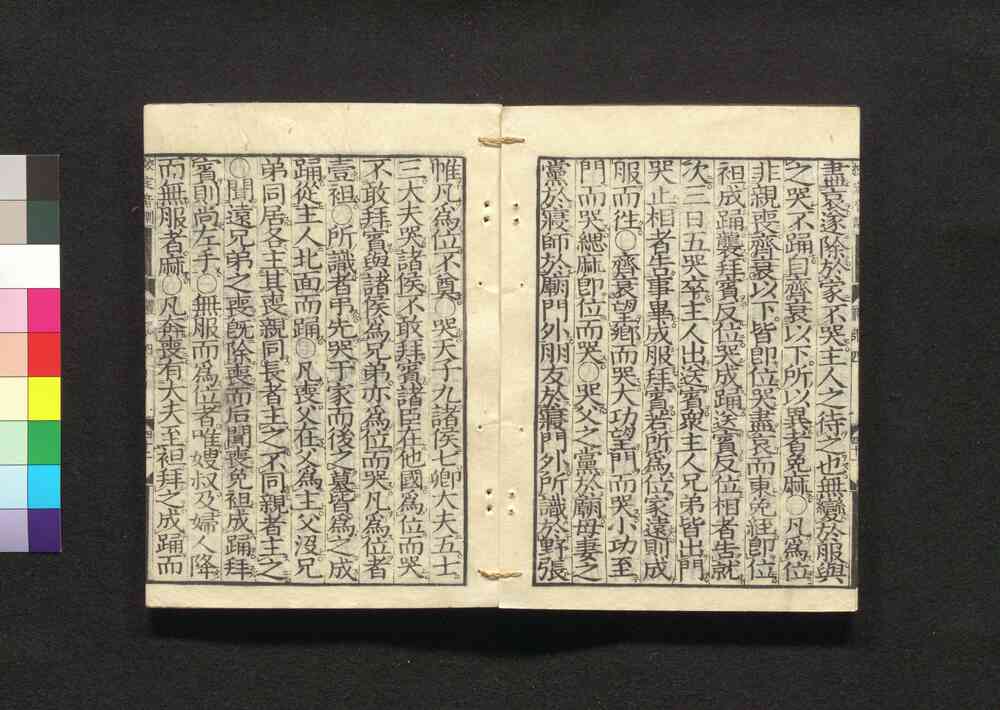 盡哀遂除於家不哭主人之待之也無變於服與
之哭不踊自齊衰以下所以異者免麻〇凡爲位
非親喪齊衰以下皆即位哭盡哀而東免絰即位
袒成踊襲拜賓反位哭成踊送賓反位相者告就
次三日五哭卒主人出送賓衆主人兄弟皆出門
哭止相者告事畢成服拜賓若所爲位家遠則成
服而徃〇齊衰望鄕而哭大功望門而哭小功至
門而哭緦麻即位而哭〇哭父之黨於廟母妻之
黨於寢師於廟門外朋友於寢門外所識於野張
帷凡爲位不奠〇哭天子九諸侯七卿大夫五士
三大夫哭諸侯不敢拜賓諸臣在他國爲位而哭
不敢拜賓與諸侯爲兄弟亦爲位而哭凡爲位者
壹袒〇所識者弔先哭于家而後之墓皆爲之成
踊從主人北面而踊〇凡喪父在父爲主父沒兄
弟同居各主其喪親同長者主之不同親者主之
〇聞遠兄弟之喪旣除喪而后聞喪免袒成踊拜
賓則尚左手〇無服而爲位者唯嫂叔及婦人降
而無服者麻〇凡奔喪有大夫至袒拜之成踊而